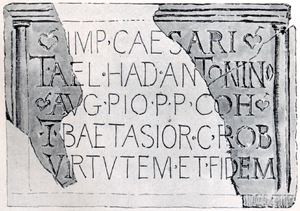 IMP·CAESARI
T·AEL·HAD·ANTONINO
AVG·PIO·P·P·COH
I·BAETASIOR·C·R·OB
VIRTVTEM·ET·FIDEM